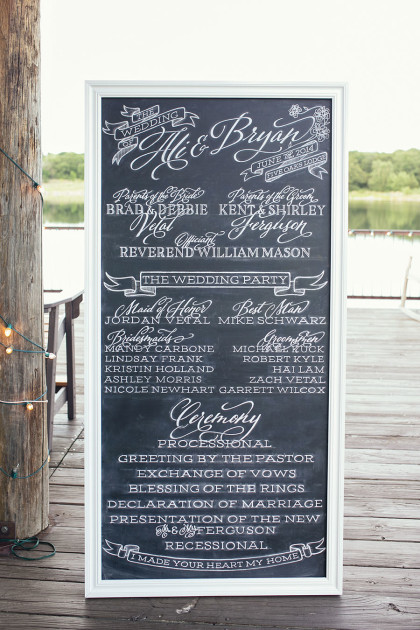 THE WEDDING
OF
Ali & Bryan
JUNE 28, 2014
FIVE OAKS LODGE
Parents of the Bride
BRAD & DEBBIE
Vetal
Parents of the Groom
KENT & SHIRLEY
Ferguson
Officiant
REVEREND WILLIAM MASON
THE WEDDING PARTY
Maid of Honor
JORDAN VETAL
Best Man
MIKE SCHWARZ
Bridesmaids
MANDY CARBONE
LINDSAY FRANK
KRISTIN HOLLAND
ASHLEY MORRIS
NICOLE NEWHART
Groomsmen
MICHAEL KUCK
ROBERT KYLE
HAI LAM
ZACH VETAL
GARRETT WILCOX
Ceremony
PROCESSIONAL
GREETING BY THE PASTOR
EXCHANGE OF VOWS
BLESSING OF THE RINGS
DECLARATION OF MARRIAGE
PRESENTATION OF THE NEW
Mr & Mrs FERGUSON
RECESSIONAL
I MADE YOUR HEART MY HOME